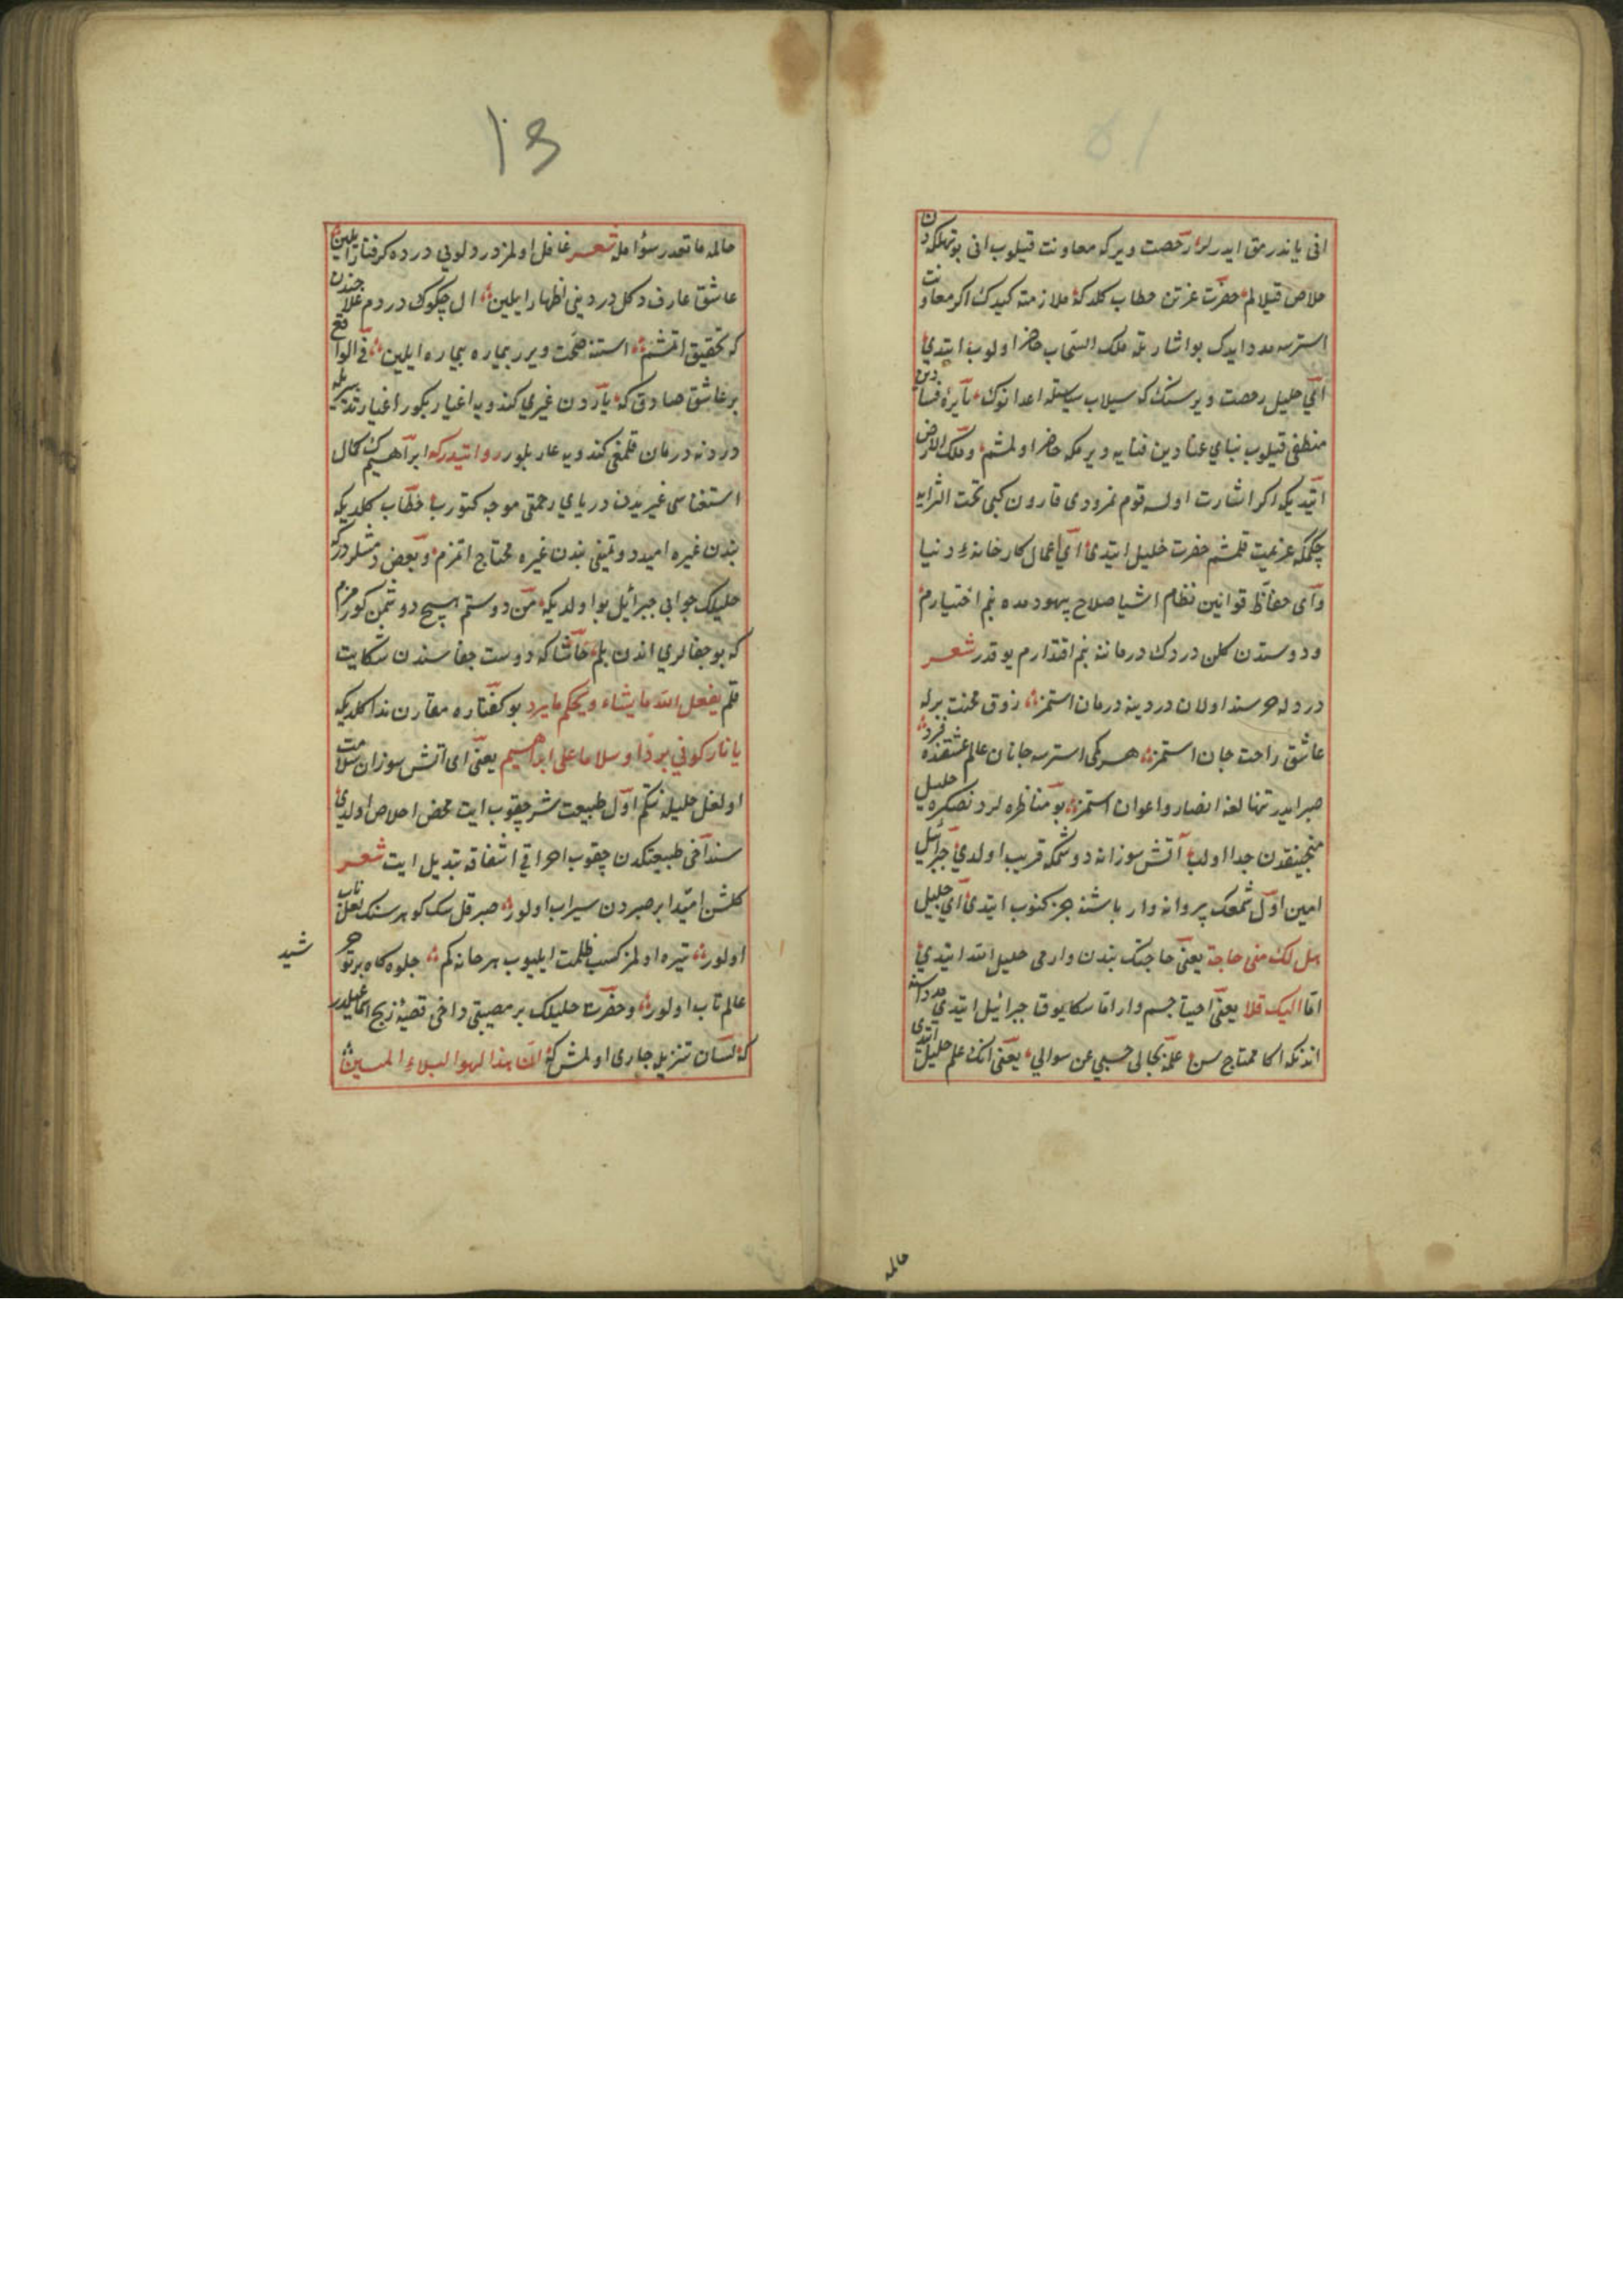 انی یاندرمق ایدرلر رخصت ویرکه معاونت قیلوب انی بو تهلکه دن
خلاص قیلالم حضرت عزتدن خطاب کلدکه ملازمته کیدک اکر معاونت
استرسه مدد ایدک بو اشارتله ملک السحاب حاضر اولوب ایتدی
ای خلیل رخصت ویر سنک که سیلاب سیاستله اعدانوک نایره فسادین
منطفی قیلوب بنای عنادین فنایه ویرمکه حاضر اولمشم و ملک الارض
ایتدیکه اکر اشارت اولسه قوم نمرودی قارون کبی تحت الثرایه
چکمکه عزیمت قلمشم حضرت خلیل ایتدی ای عمال کارخانهٔ دنیا
و ای حفاظ قوانین نظام اشیا صلاح بهبودمده بنم اختیارم
و دوستدن کلن دردک درماننه بنم اقتدارم یوقدر شعر
دردله خرسند اولان دردینه درمان استمز ذوق محنت برله
عاشق راحت جان استمز هر کی استرسه جانان عالم عشقنده فرد
صبر ایدر تنهالغه انصار و اعوان استمز بو مناظره لردن صکره خلیل
منجنیقدن جدا اولب آتش سوزانه دوشمکه قریب اولدی جبرائیل
امین اول شمعک پروانه وار باشنه چزکنوب ایتدی ای خلیل
هل لک منی حاجة یعنی حاجتک بندن وارمی خلیل الله ایتدی
اما الیک فلا یعنی احتیاجم وار اما سکا یوق جبرائیل ایتدی مدد استه
اندنکه اکا محتاج سن علمه بحالی حسبی عن سوالی یعنی انک علم خلیل ایتدی
حالمه
۵۱
حالمه مانعدر سؤالمه شعر غافل اولمز درد لوبی درده کرفتار ایلین
عاشق عارف دکل دردینی اظهار ایلین ال چکوک دردم علاجندن
که تحقیق اتمشم استنه صحت ویرر بیماره بیماره ایلین فی الواقع
بر عاشق صادق که یاردن غیری کندویه اغیار بکور اغیار تدبیریله
دردنه درمان قلمغی کندویه عار بلور روایتدرکه ابراهیمک کمال
استغناسی غیریدن دریای رحمتی موجه کتورب خطاب کلدیکه
بندن غیره امید دوتمیانی بندن غیره محتاج اتمزم و بعض دمشلردرکه
خلیلک جوابی جبرائیل بو اولدیکه من دوستم هیچ دوشمن کورمزم
که بو جفالری اندن بلم حاشا که دوست جفاسندن شکایت
قلم یفعل الله ما یشاء و یحکم ما یرید بو کفتاره مقارن ندا کلدیکه
یا نار کونی بردا و سلاما علی ابراهیم یعنی ای آتش سوزان سلامت
اولغل خلیله نتکم اول طبیعت بشر چقوب ایت محض اخلاص اولدی
سن داخی طبیعتکدن چقوب احراقی اشفاقه تبدیل ایت شعر
کلشن امید ابر صبردن سیراب اولور صبر قل سک کوهر سنک لعل ناب
اولور تیره اولمز کسب ظلمت ایلیوب هر خانه کم جلوه کاه پرتو خورشید
عالم تاب اولور و حضرت خلیلک بر مصیبتی داخی قصهٔ ذبح اسماعیلدر
که لسان تنزیله جاری اولمش که ان هذا لهو البلاء المبین